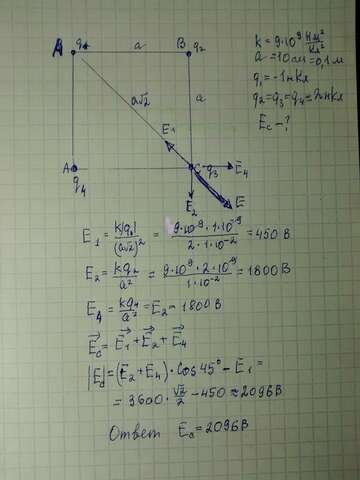 A q₁ a B q₂
k = 9·10⁹ Нм²/Кл²
a = 10 см = 0,1 м
q₁ = -1 нКл
q₂ = q₃ = q₄ = 2 нКл
E_c - ?
a√2
a
E₁
A
q₄
C q₃
E₄
E₂
E
E₁ = k|q₁|/(a√2)² = 9·10⁹·1·10⁻⁹/2·1·10⁻² = 450 В
E₂ = kq₂/a² = 9·10⁹·2·10⁻⁹/1·10⁻² = 1800 В
E₄ = kq₄/a² = E₂ = 1800 В
E⃗_c = E⃗₁ + E⃗₂ + E⃗₄
|E_c| = (E₂ + E₄)·cos 45° - E₁ =
= 3600·√2/2 - 450 ≈ 2096 В
Ответ E_c = 2096 В